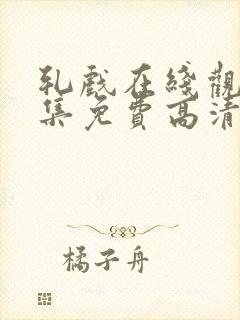 乳戲在綫觀
集免費高清
橘子舟